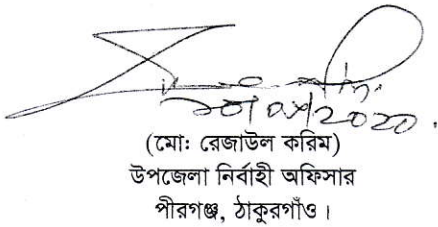 (মোঃ রেজাউল করিম)
উপজেলা নির্বাহী অফিসার
পীরগঞ্জ, ঠাকুরগাঁও।